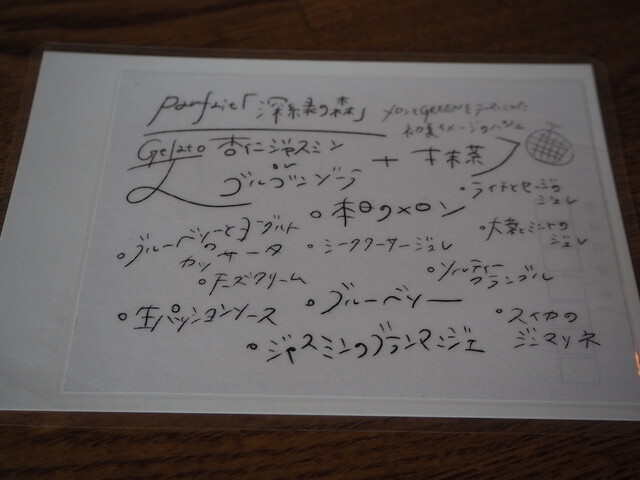 Parfait「深緑の森」
メロンとGREENをテーマにした
初夏イメージのパフェ
Gelato 杏仁ジャスミン
or
ゴルゴンゾーラ
+ 抹茶
・ライチとセージの
ジュレ
・本日のメロン
・大葉とミントの
ジュレ
・ブルーベリーとヨーグルト
の
カッサータ
・シークワーサージュレ
・チーズクリーム
・ソルティー
クランブル
・生パッションソース
・ブルーベリー
・スイカの
ジンマリネ
・ジャスミンのブランマンジェ